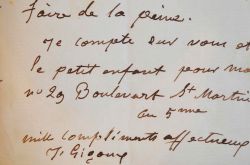 faire de la peine.
Je compte sur vous et
le petit enfant pour
no 29 Boulevart St Martin
au 5me
mille compliments affectueux